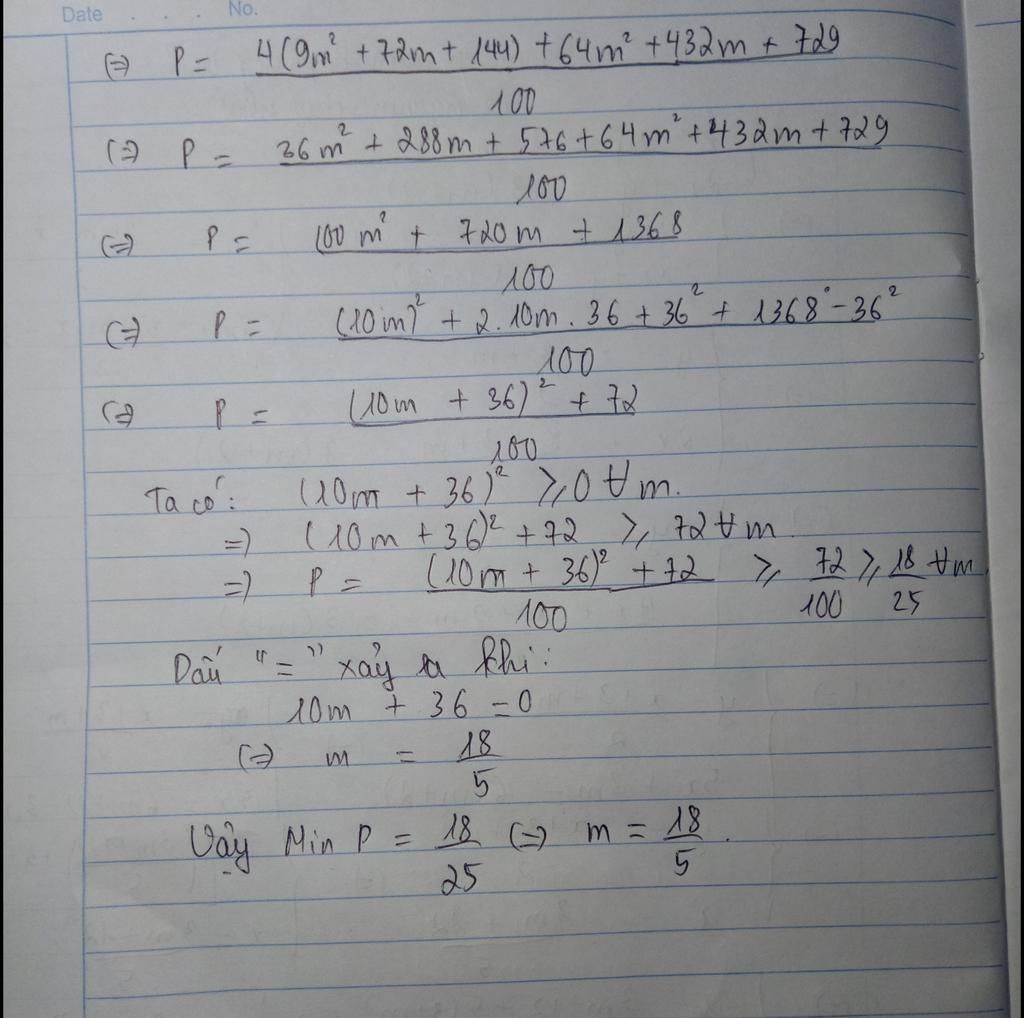 Date . . . No.
(=) P = 4(9m² + 72m + 144) + 64m² + 432m + 729
100
(=) P = 36m² + 288m + 576 + 64m² + 432m + 729
100
(=) P = 100m² + 720m + 1368
100
(=) P = (10m)² + 2.10m.36 + 36² + 1368 - 36²
100
(=) P = (10m + 36)² + 72
100
Ta có: (10m + 36)² ≥ 0 ∀m.
=) (10m + 36)² + 72 ≥ 72 ∀m.
=) P = (10m + 36)² + 72 ≥ 72 ≥ 18 ∀m
100 100 25
Dấu "=" xảy ra khi:
10m + 36 = 0
(=) m = 18
5
Vậy Min P = 18 (=) m = 18.
25 5